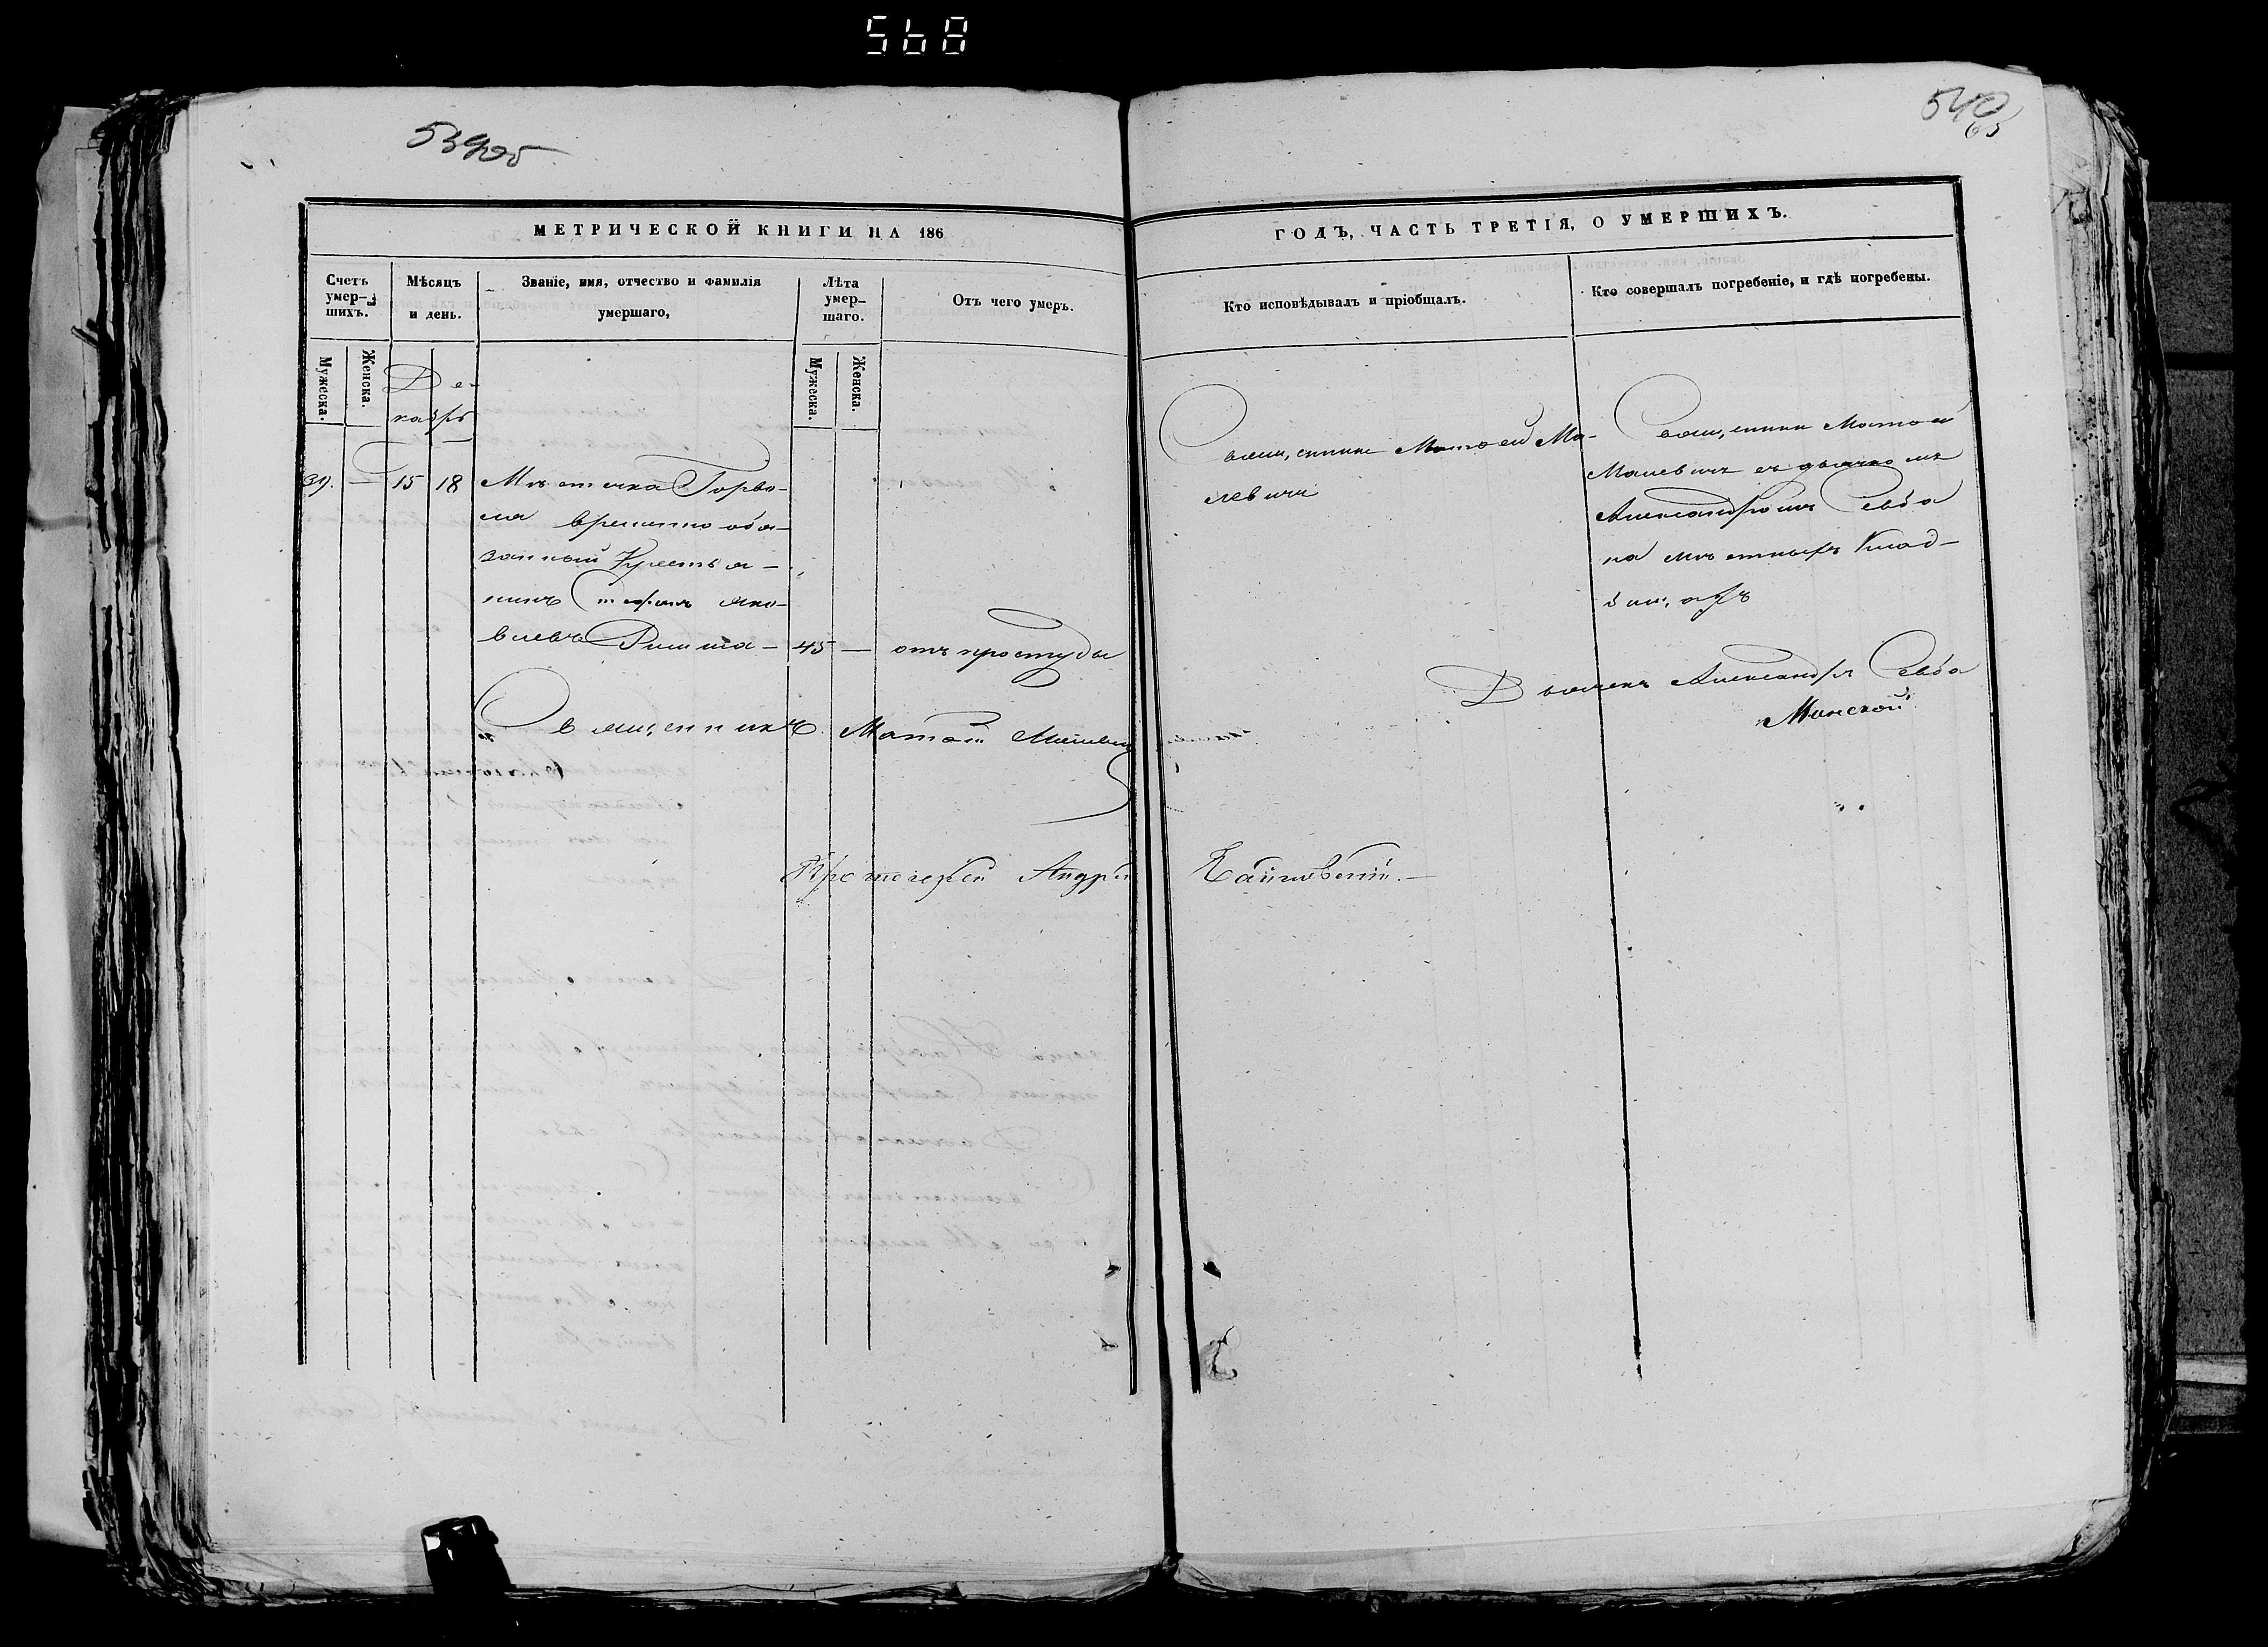 568
539об
540
65
МЕТРИЧЕСКОЙ КНИГИ НА 186
ГОДЪ, ЧАСТЬ ТРЕТІЯ, О УМЕРШИХЪ.
Счетъ умер-шихъ.
Мѣсяцъ и день.
Званіе, имя, отчество и фамилія
умершаго,
Лѣта умер-шаго.
Отъ чего умеръ.
Кто исповѣдывалъ и пріобщалъ.
Кто совершалъ погребеніе, и гдѣ погребены.
Мужеска.
Женска.
Мужеска.
Женска.
Де-
кабрь
39. — 15 18 Мѣстечка Горво-
ля временно обя-
занный Крестья-
нинъ Стефанъ Яко-
влевъ — 45 — отъ простуды
Священникъ Матѳей Ма-
левичъ
Священникъ Матѳей
Малевичъ съ дьячкомъ
Александромъ Савба
на мѣстныхъ Клад-
бищахъ
Священникъ Матѳей Малевичъ
Дьячекъ Александръ Савба
Манской
Протоіерей Андрей